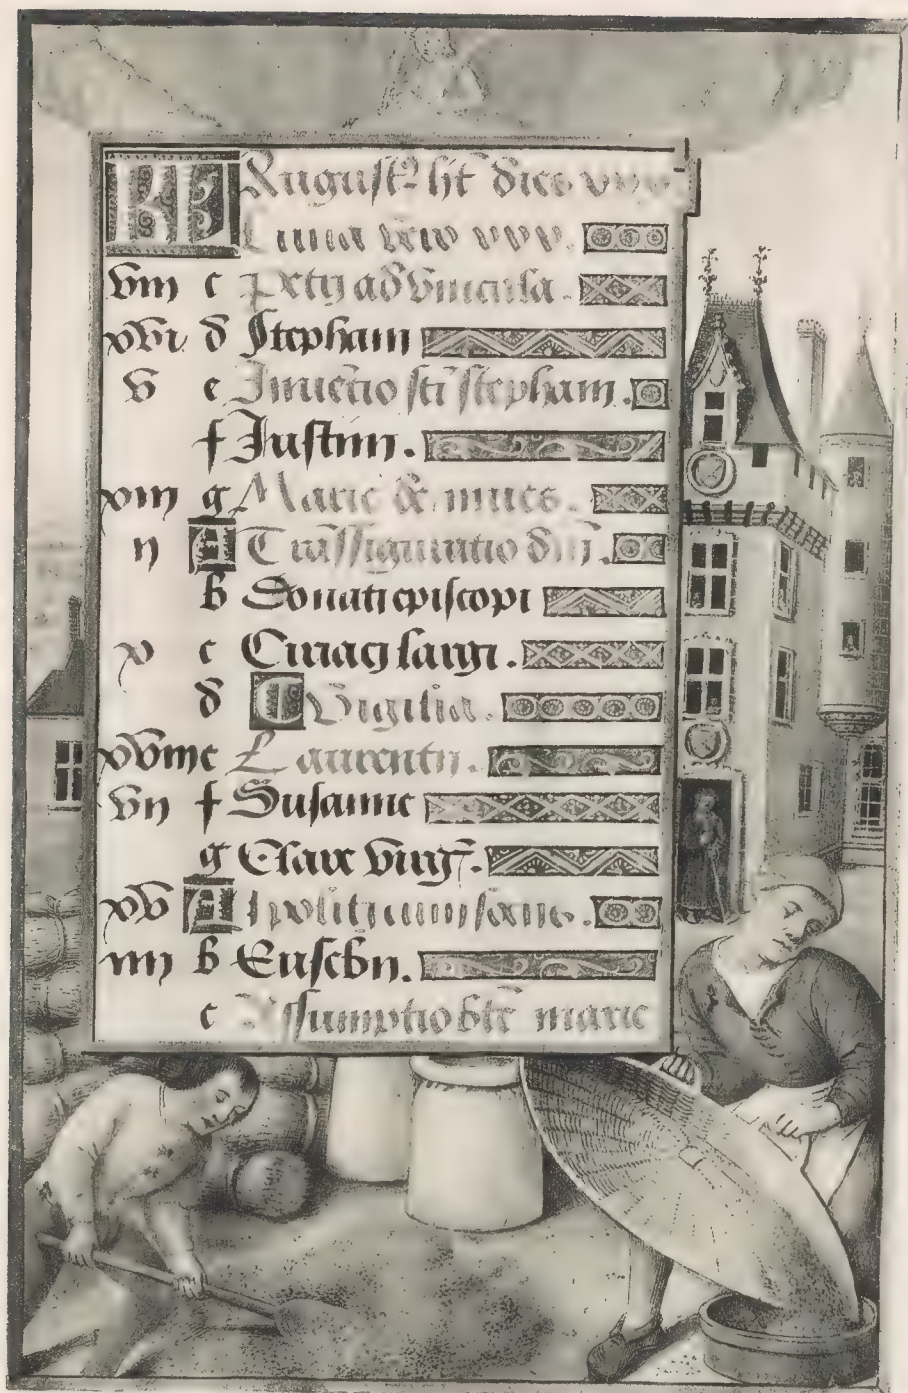 KL August⁹ ht̄ dies
Luna
viii c Petri ad vincula.
xvi d Stephani
v e Inuētio sti stephani.
f Justini.
xiii g Marie & niues.
ii A Trāssiguratio dn̄i.
b Donati episcopi
x c Ciriaci largi.
d Vigilia.
xviii e Laurentii.
vii f Susanne
g Clare virḡ.
xv A
iiii b Eusebii.
c Assumptio bte marie